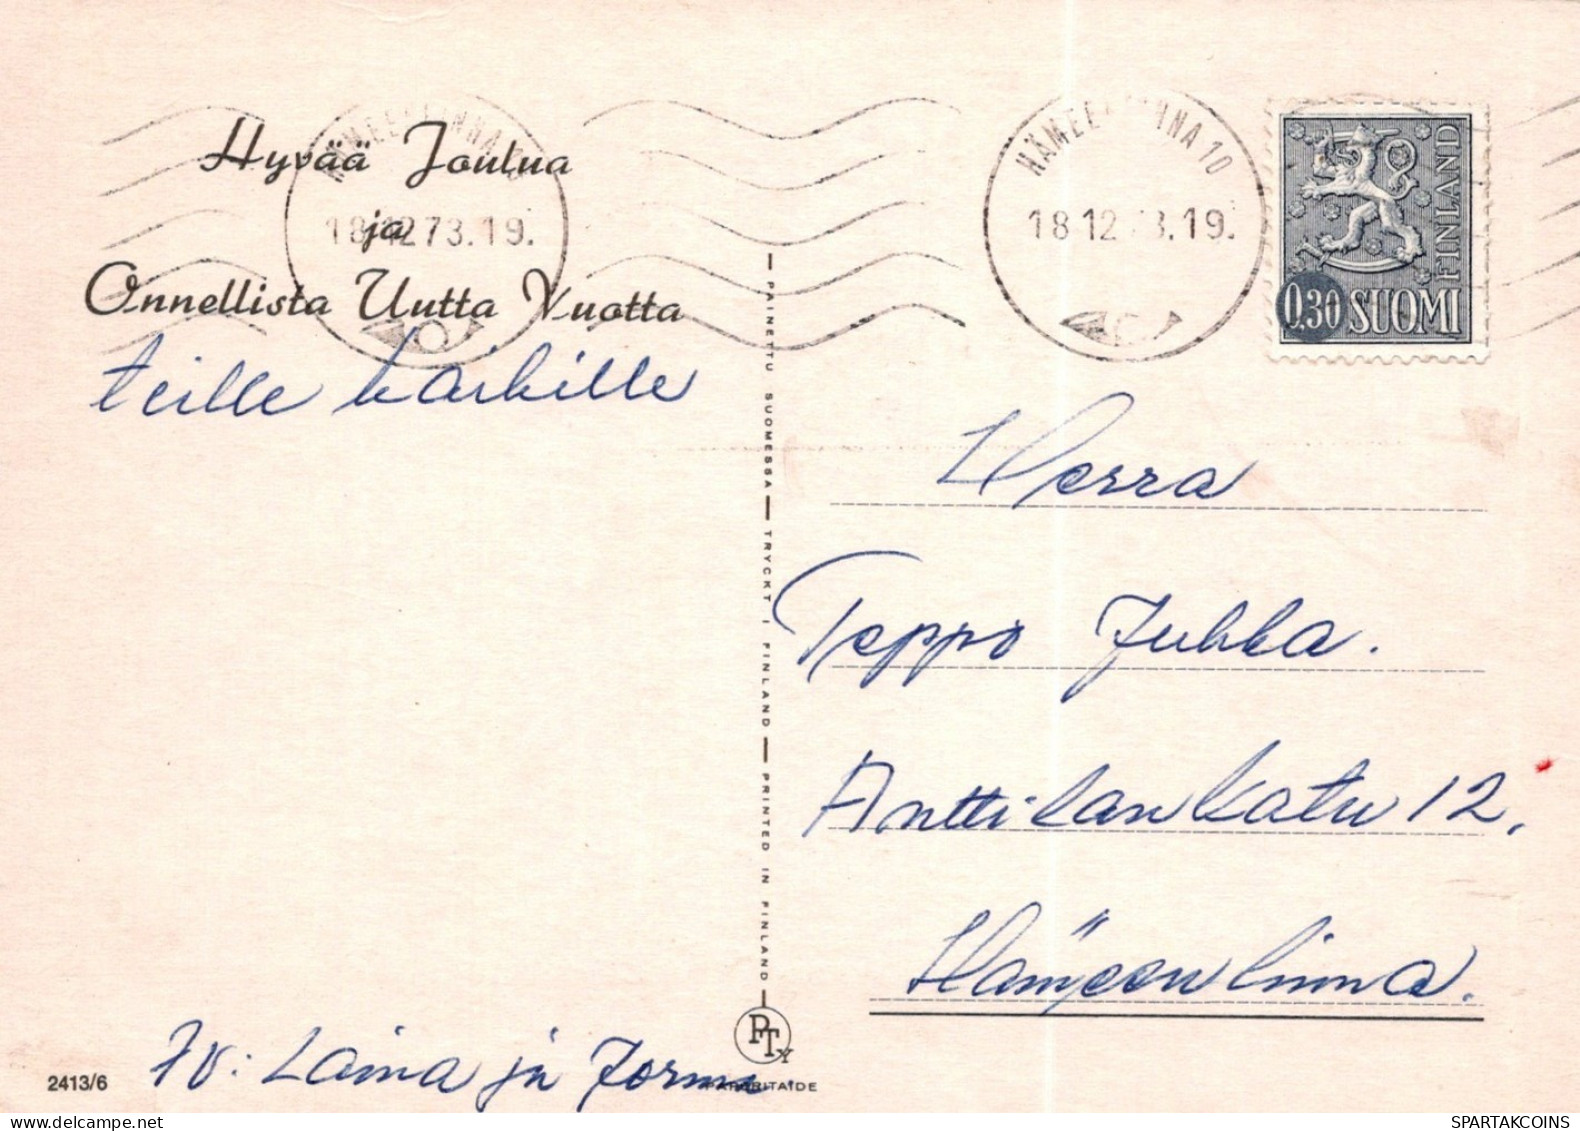 HÄMEENLINNA 10
18.12.73.19.
HÄMEENLINNA 10
18.12.73.19.
FINLAND
0,30 SUOMI
Hyvää Joulua
ja
Onnellista Uutta Vuotta
teille kaikille
PAINETTU SUOMESSA — TRYCKT I FINLAND — PRINTED IN FINLAND
Herra
Teppo Jukka.
Anttilankatu 12.
Hämeenlinna.
Tv: Laina ja Jorma
PTy
PAPERITAIDE
2413/6
delcampe.net
SPARTAKCOINS